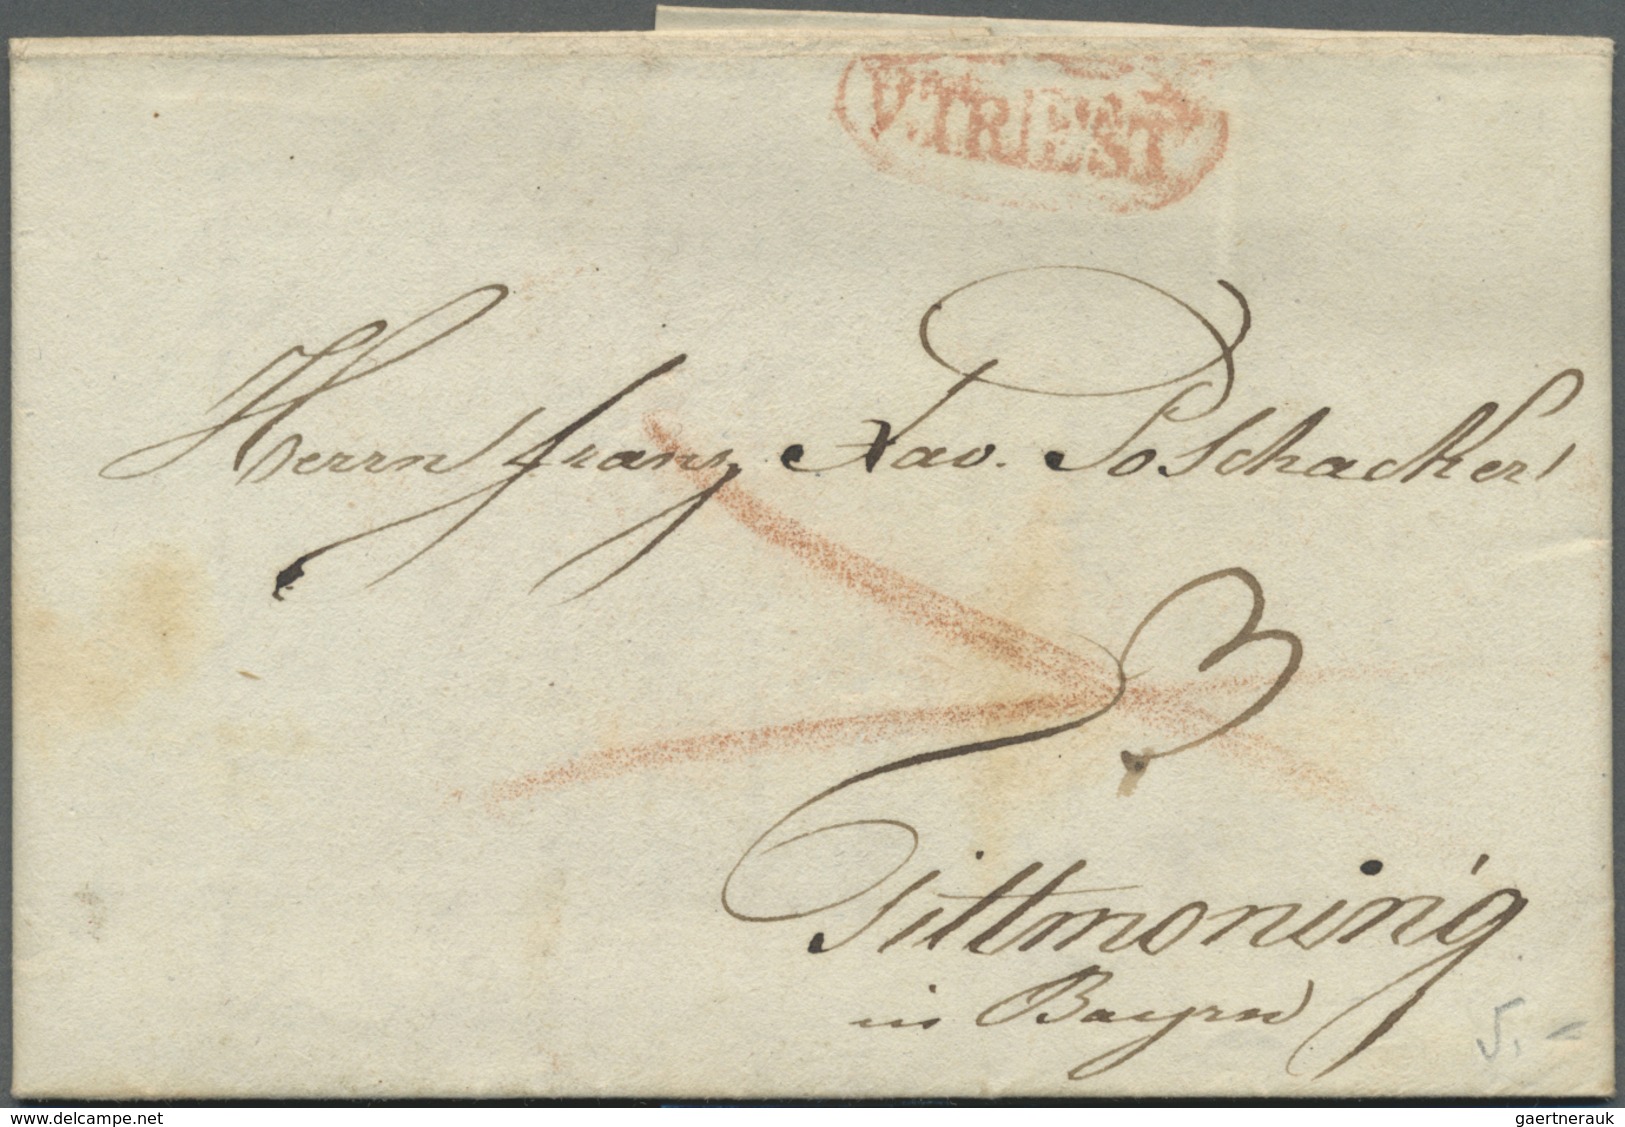 V.TRIEST
Herrn franz Xav. Poschacher
Tittmoning
in Bayrn
5. –
www.delcampe.net
gaertnerauk